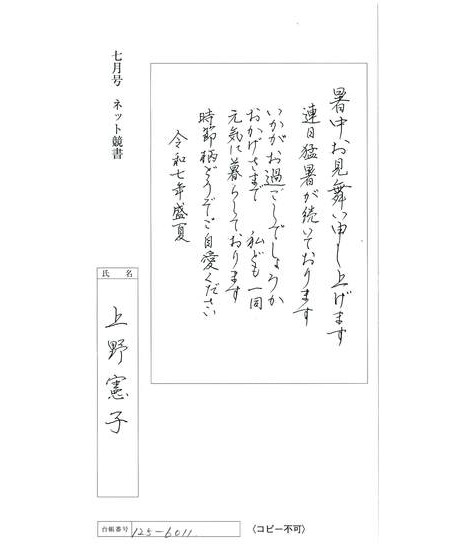 暑中お見舞い申し上げます
連日猛暑が続いております
いかがお過ごしでしょうか
おかげさまで　私ども一同
元気に暮らしております
時節柄どうぞご自愛ください
令和七年盛夏
七月号　ネット競書
氏名
上野憲子
台帳番号 125-6011
〈コピー不可〉